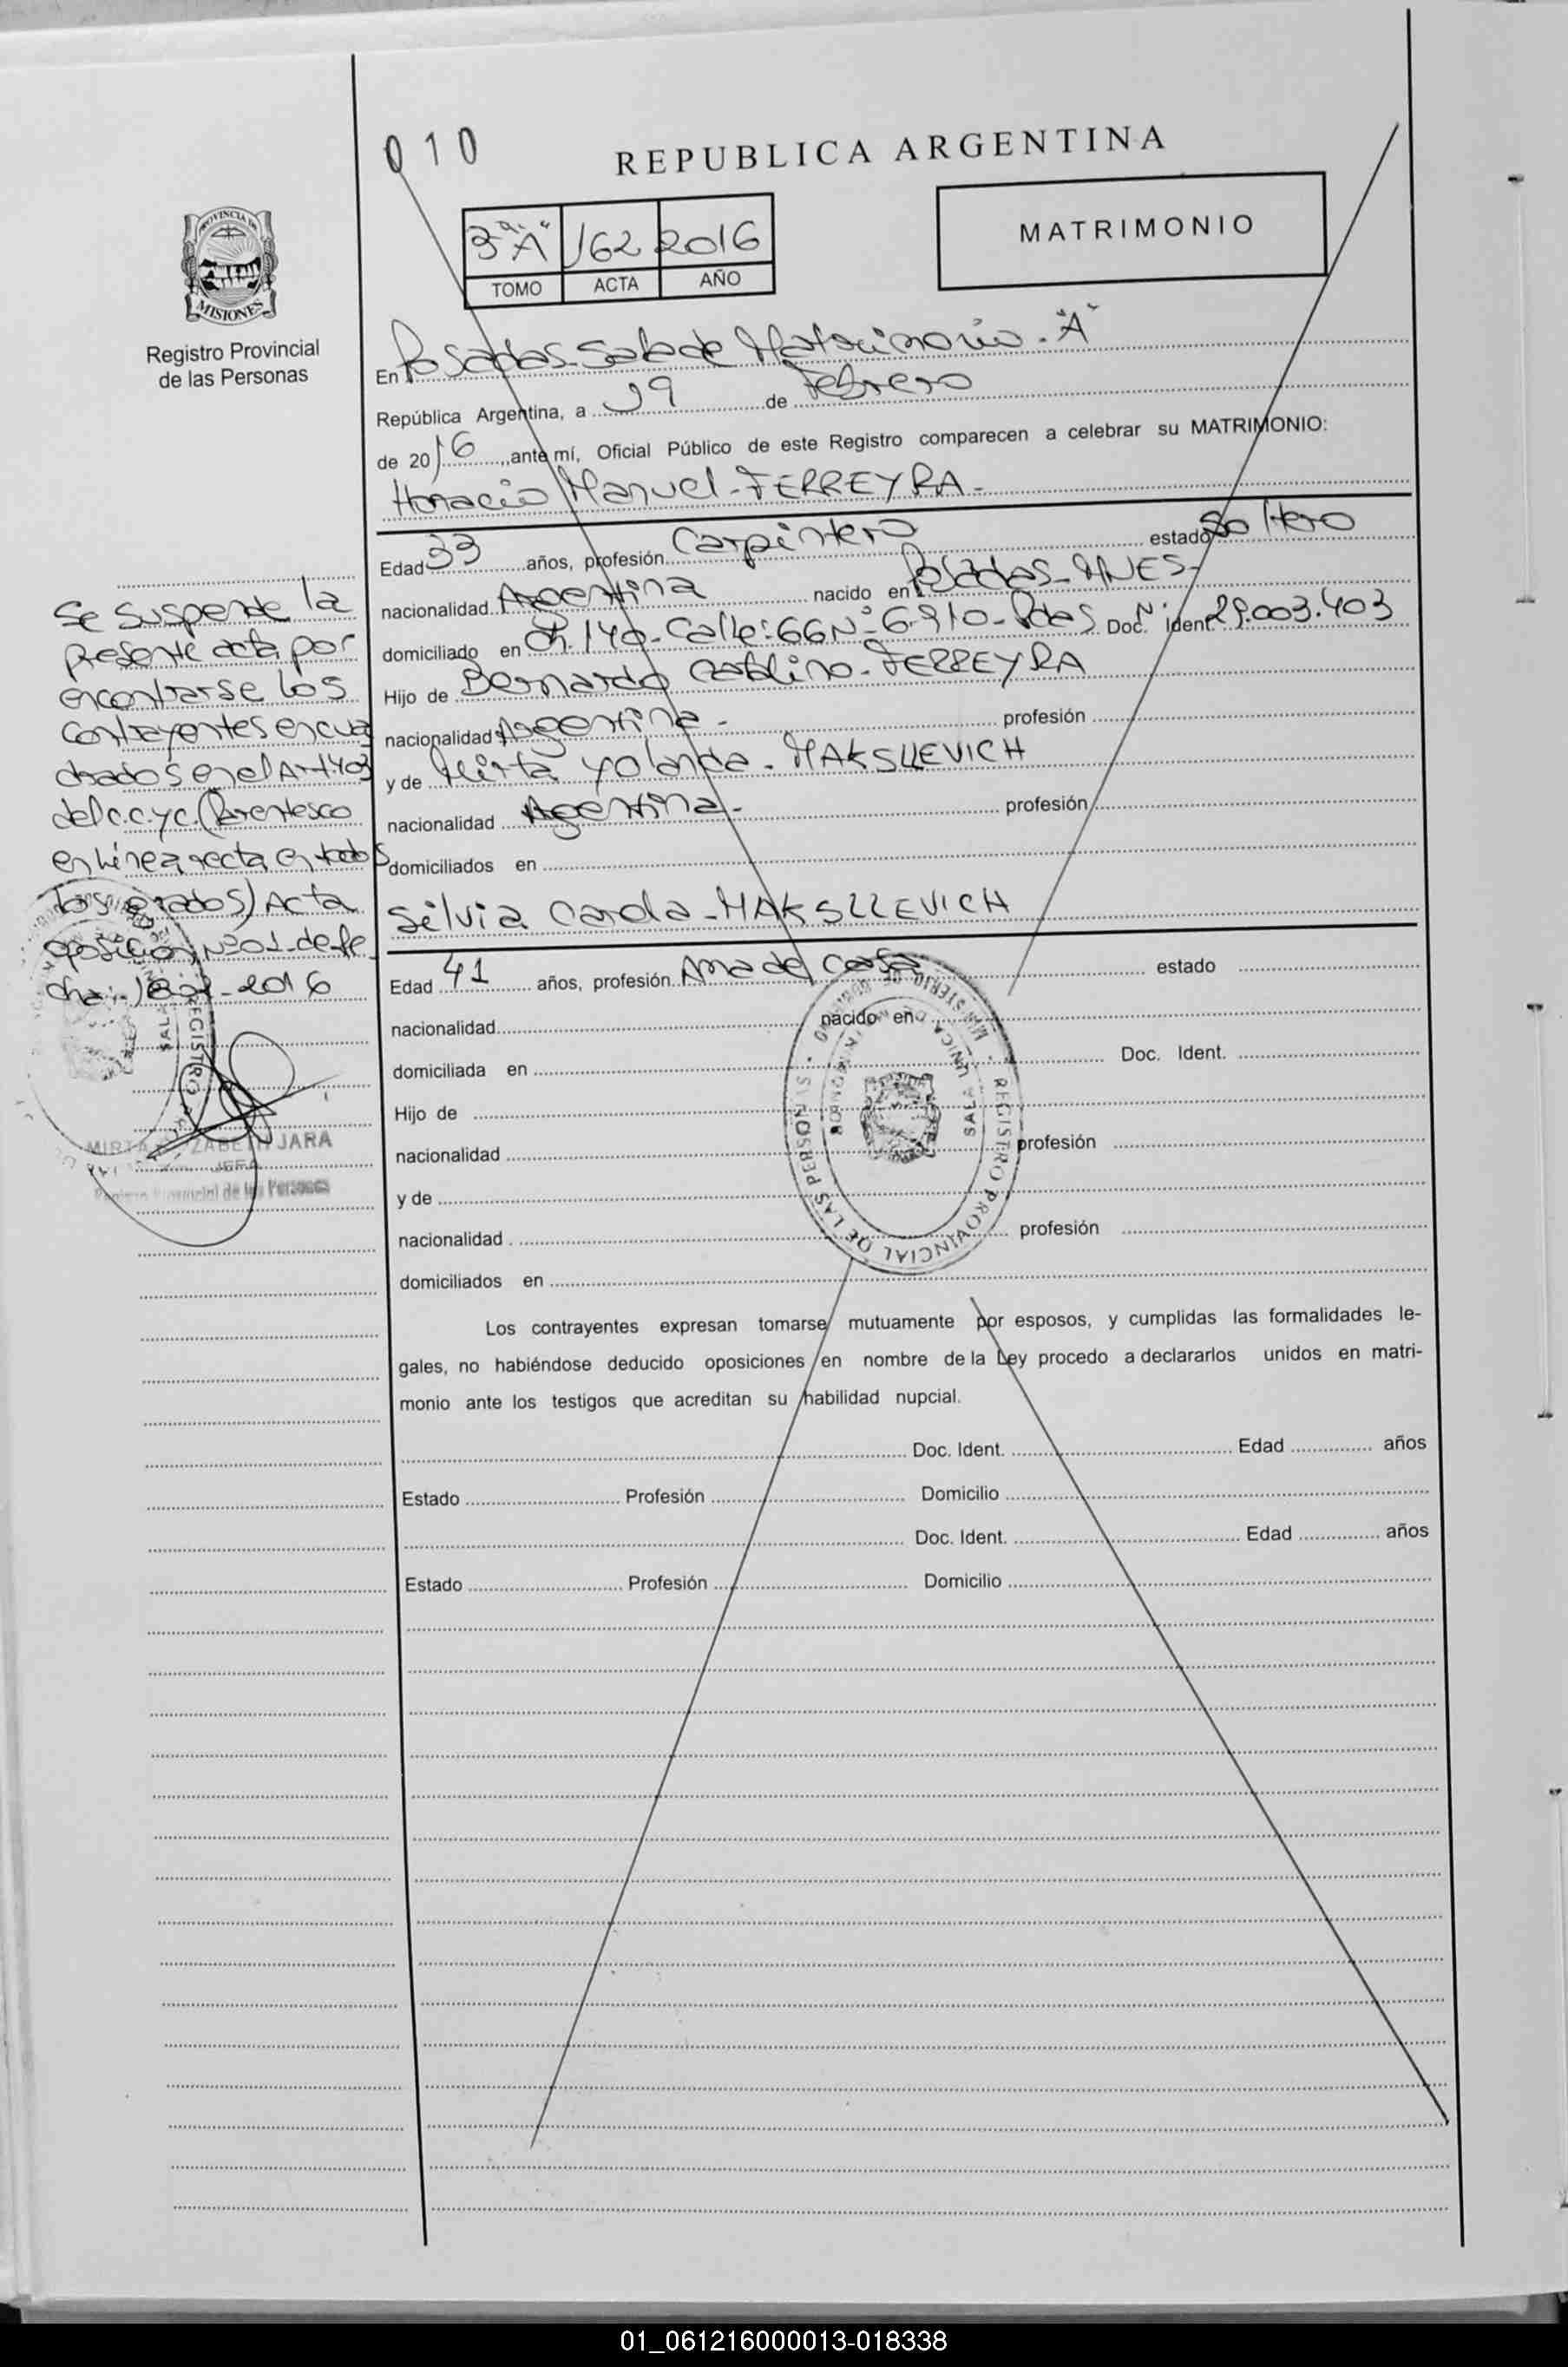 010
REPUBLICA ARGENTINA
3º "A" 162 2016
TOMO ACTA AÑO
MATRIMONIO
PROVINCIA DE
MISIONES
Registro Provincial
de las Personas
En Posadas-Sala de Matrimonio-"A"
República Argentina, a 19 de Febrero
de 2016, ante mí, Oficial Público de este Registro comparecen a celebrar su MATRIMONIO:
Horacio Manuel-FERREYRA-
Edad 33 años, profesión Carpintero estado Soltero
nacionalidad Argentina nacido en Posadas-MNES-
domiciliado en Ch.140-Calle:66Nº6910-Pdas Doc. Ident. Nº29.003.403
Hijo de Bernardo FERREYRA
nacionalidad Argentina- profesión
y de Mirta Yolanda-MAKSLLEVICH
nacionalidad Argentina- profesión
domiciliados en
Silvia Carola-MAKSLLEVICH
Edad 41 años, profesión Ama de Casa estado
nacionalidad nacido en
domiciliada en Doc. Ident.
Hijo de
nacionalidad profesión
y de
nacionalidad profesión
domiciliados en
Los contrayentes expresan tomarse mutuamente por esposos, y cumplidas las formalidades le-
gales, no habiéndose deducido oposiciones en nombre de la Ley procedo a declararlos unidos en matri-
monio ante los testigos que acreditan su habilidad nupcial.
Doc. Ident. Edad años
Estado Profesión Domicilio
Doc. Ident. Edad años
Estado Profesión Domicilio
Se suspende la
presente acta por
encontrarse los
contrayentes encua
drados en el Art 403
del C.C.yC. (Parentesco
en Línea recta en todos
los grados) Acta
oposición Nº01-de fe
cha:-
-2016
JARA
JEFA
Registro Provincial de las Personas
REGISTRO PROVINCIAL DE LAS PERSONAS
MINISTERIO DE GOBIERNO
SALA UNICA DE MATRIMONIOS
01_061216000013-018338